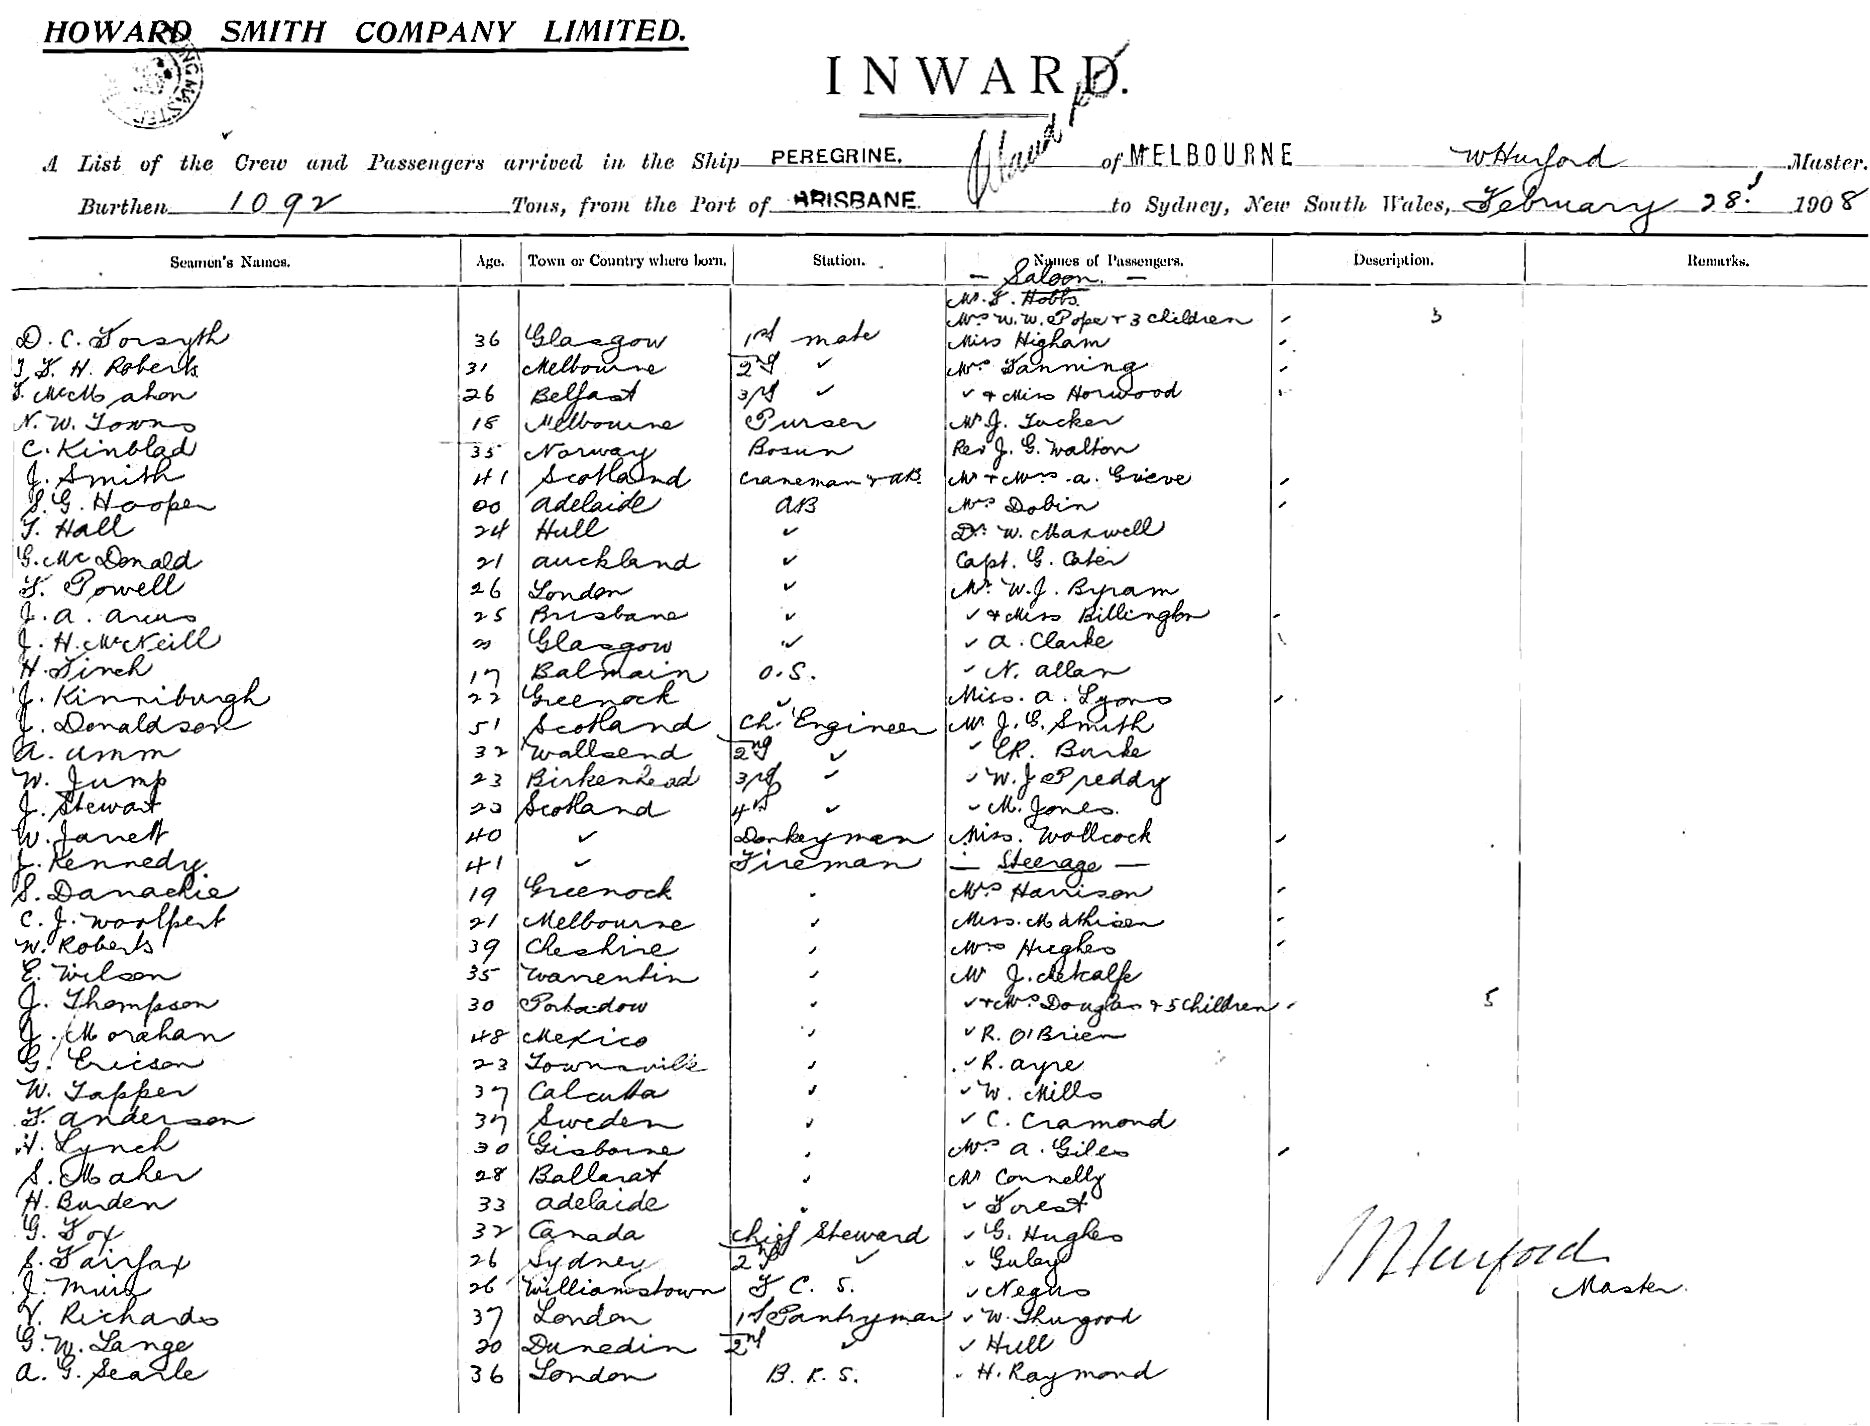 HOWARD SMITH COMPANY LIMITED.
INWARD.
A List of the Crew and Passengers arrived in the Ship PEREGRINE. of MELBOURNE W Hurford Master.
Burthen 1092 Tons, from the Port of BRISBANE. to Sydney, New South Wales, February 28. 1908
Seamen's Names. Age. Town or Country where born. Station. Names of Passengers. Description. Remarks.
— Saloon. —
Mr. F. Hobbs.
Mrs W. W. Pope + 3 children 3
D. C. Forsyth 36 Glasgow 1st mate Miss Higham
F. H. Roberts 31 Melbourne 2nd ✓ Mrs Fanning
F. McMahon 26 Belfast 3rd ✓ ✓ + Miss Horwood
N. W. Towns 18 Melbourne Purser Mr J. Tucker
C. Kinblad 35 Norway Bosun Rev J. G. Walton
J. Smith 41 Scotland Craneman + AB. Mr + Mrs. A. Grieve
S. G. Hooper Adelaide AB Mrs Dobin
T. Hall 24 Hull ✓ Dr. W. Maxwell
G. McDonald 21 Auckland ✓ Capt. G. Cater
F. Powell 26 London ✓ Mr. W. J. Byram
J. A. 25 Brisbane ✓ ✓ + Miss Billington
J. H. McNeill Glasgow ✓ ✓ A. Clarke
H. Finch 17 Balmain O.S. ✓ N. Allan
J. Kinniburgh 22 Greenock ✓ Miss. A. Lyons
J. Donaldson 51 Scotland Ch. Engineer Mr J. G. Smith
A. Amm 32 Wallsend 2nd ✓ ✓ E R. Burke
W. Jump 23 Birkenhead 3rd ✓ ✓ W. J. Preddy
J. Stewart 23 Scotland 4th ✓ ✓ M. Jones.
W. Jarrett 40 ✓ Donkeyman Miss. Wollcock
J. Kennedy. 41 ✓ Fireman — Steerage —
S. Danackie 19 Greenock Mrs Harrison
C. J. Woolpert 21 Melbourne Miss. Mathisen
W. Roberts 39 Cheshire Mrs Hughes
E. Wilson 35 Warrentin Mr J. Metcalfe
J. Thompson 30 Portadow ✓ + Mrs Douglas + 5 Children 5
J. Morahan 48 Mexico ✓ R. O'Brien
G. Ericson 23 Townsville ✓ R. Ayre
W. Tapper 37 Calcutta ✓ W. Mills
F. Anderson 37 Sweden ✓ C. Cramond
H. Lynch 30 Gisborne Mrs A. Giles
S. Maher 28 Ballarat Mr Connelly
H. Burden 33 Adelaide ✓ Forest
G. Fox 32 Canada Chief Steward ✓ G. Hughes
S. Fairfax 26 Sydney 2nd ✓ ✓
J. Muir 26 Williamstown F. C. S. ✓ Negus
V. Richards 37 London 1st Pantryman ✓ W. Thurgood
G. W. Lange 20 Dunedin 2nd ✓ ✓ Hull
A. G. Searle 36 London B. R. S. H. Raymond
W Hurford
Master.